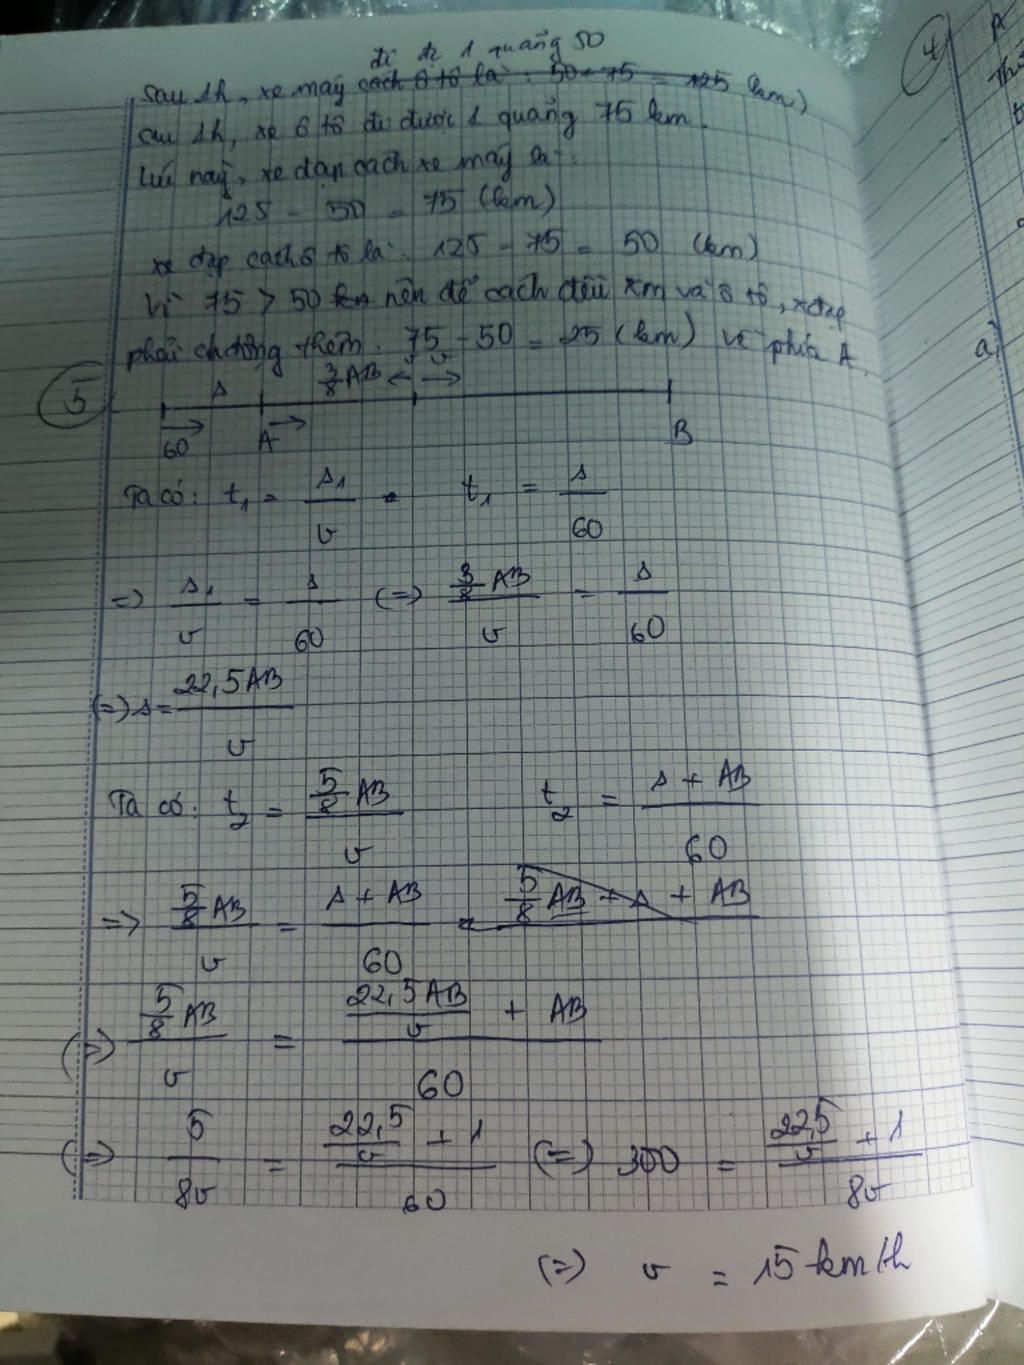 đi đc 1 quãng 50
Sau 1h, xe máy cách ô tô là : 50 + 75 = 125 (km)
au 1h, xe ô tô đi được 1 quãng 75 km.
Lúc này, xe đạp cách xe máy là :
125 - 50 = 75 (km)
xe đạp cách ô tô là : 125 - 75 = 50 (km)
Vì 75 > 50 km nên để cách đều xm và ô tô, xđạp
phải ch động thêm : 75 - 50 = 25 (km) về phía A.
5 s 3/8 AB ← v →
60 → A → B
Ta có : t1 = s1/v = t1 = s/60
=> s1/v = s/60 (=) 3/8 AB / v = s/60
(=) s = 22,5AB / v
Ta có : t2 = 5/8 AB / v t2 = s + AB / 60
=> 5/8 AB / v = s + AB / 60 = 5/8 AB + s + AB
(=) 5/8 AB / v = 22,5AB/v + AB / 60
(=) 5/8v = 22,5/v + 1 / 60 (=) 300 = 22,5/v + 1 / 8v
(=) v = 15 km/h
4
A
a)